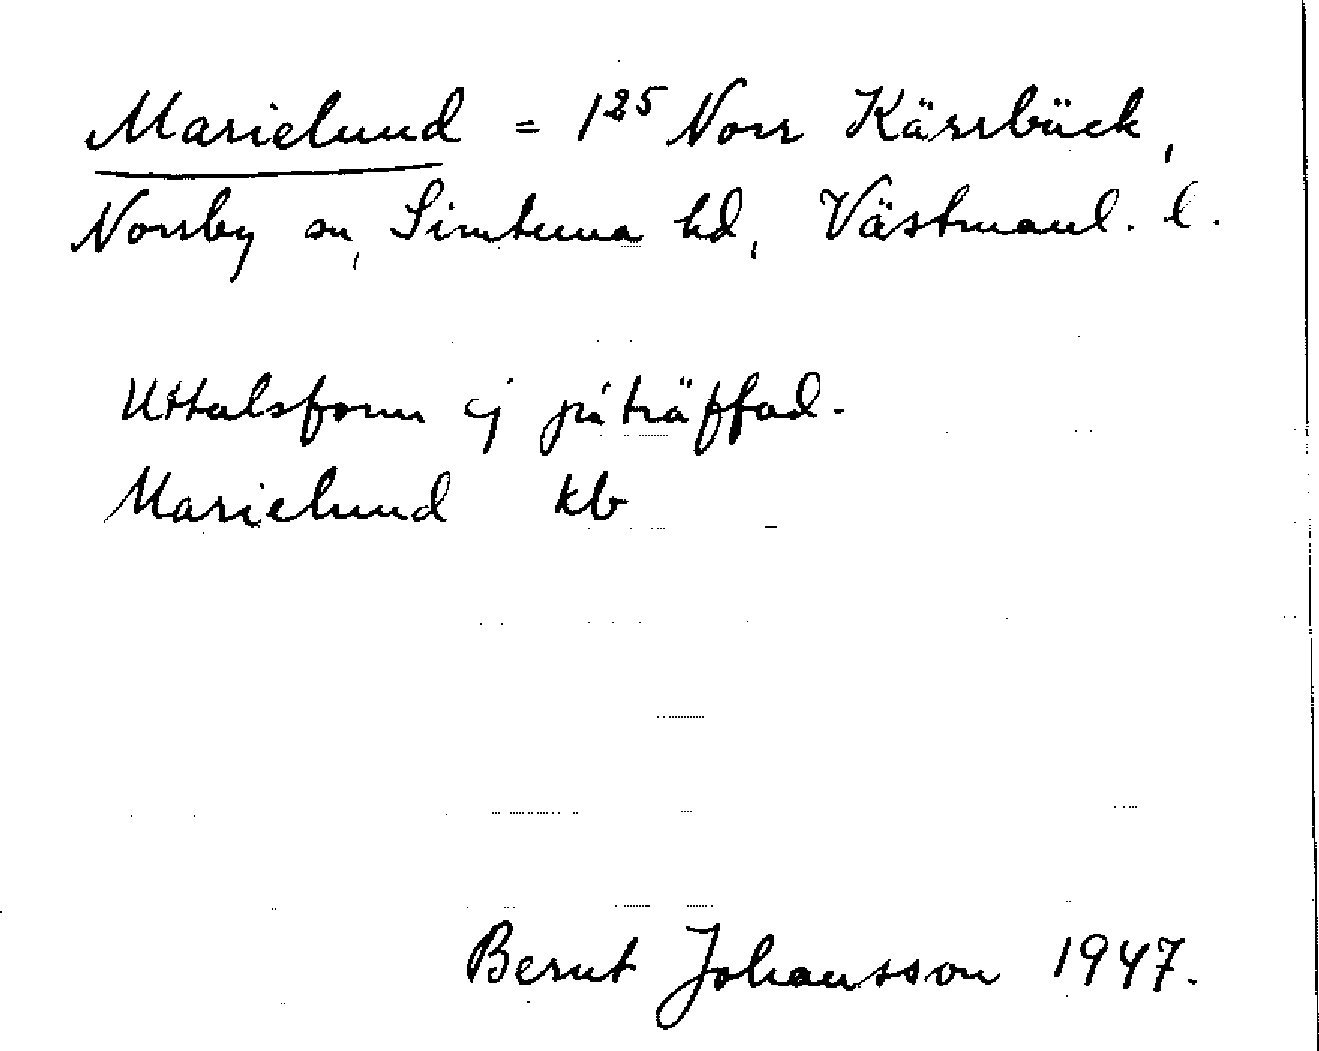 Marielund = 1²⁵ Norr Kärrbäck,
Norrby sn, Simtuna hd, Västmanl. l.
Uttalsform ej påträffad.
Marielund kb
Bernt Johansson 1947.